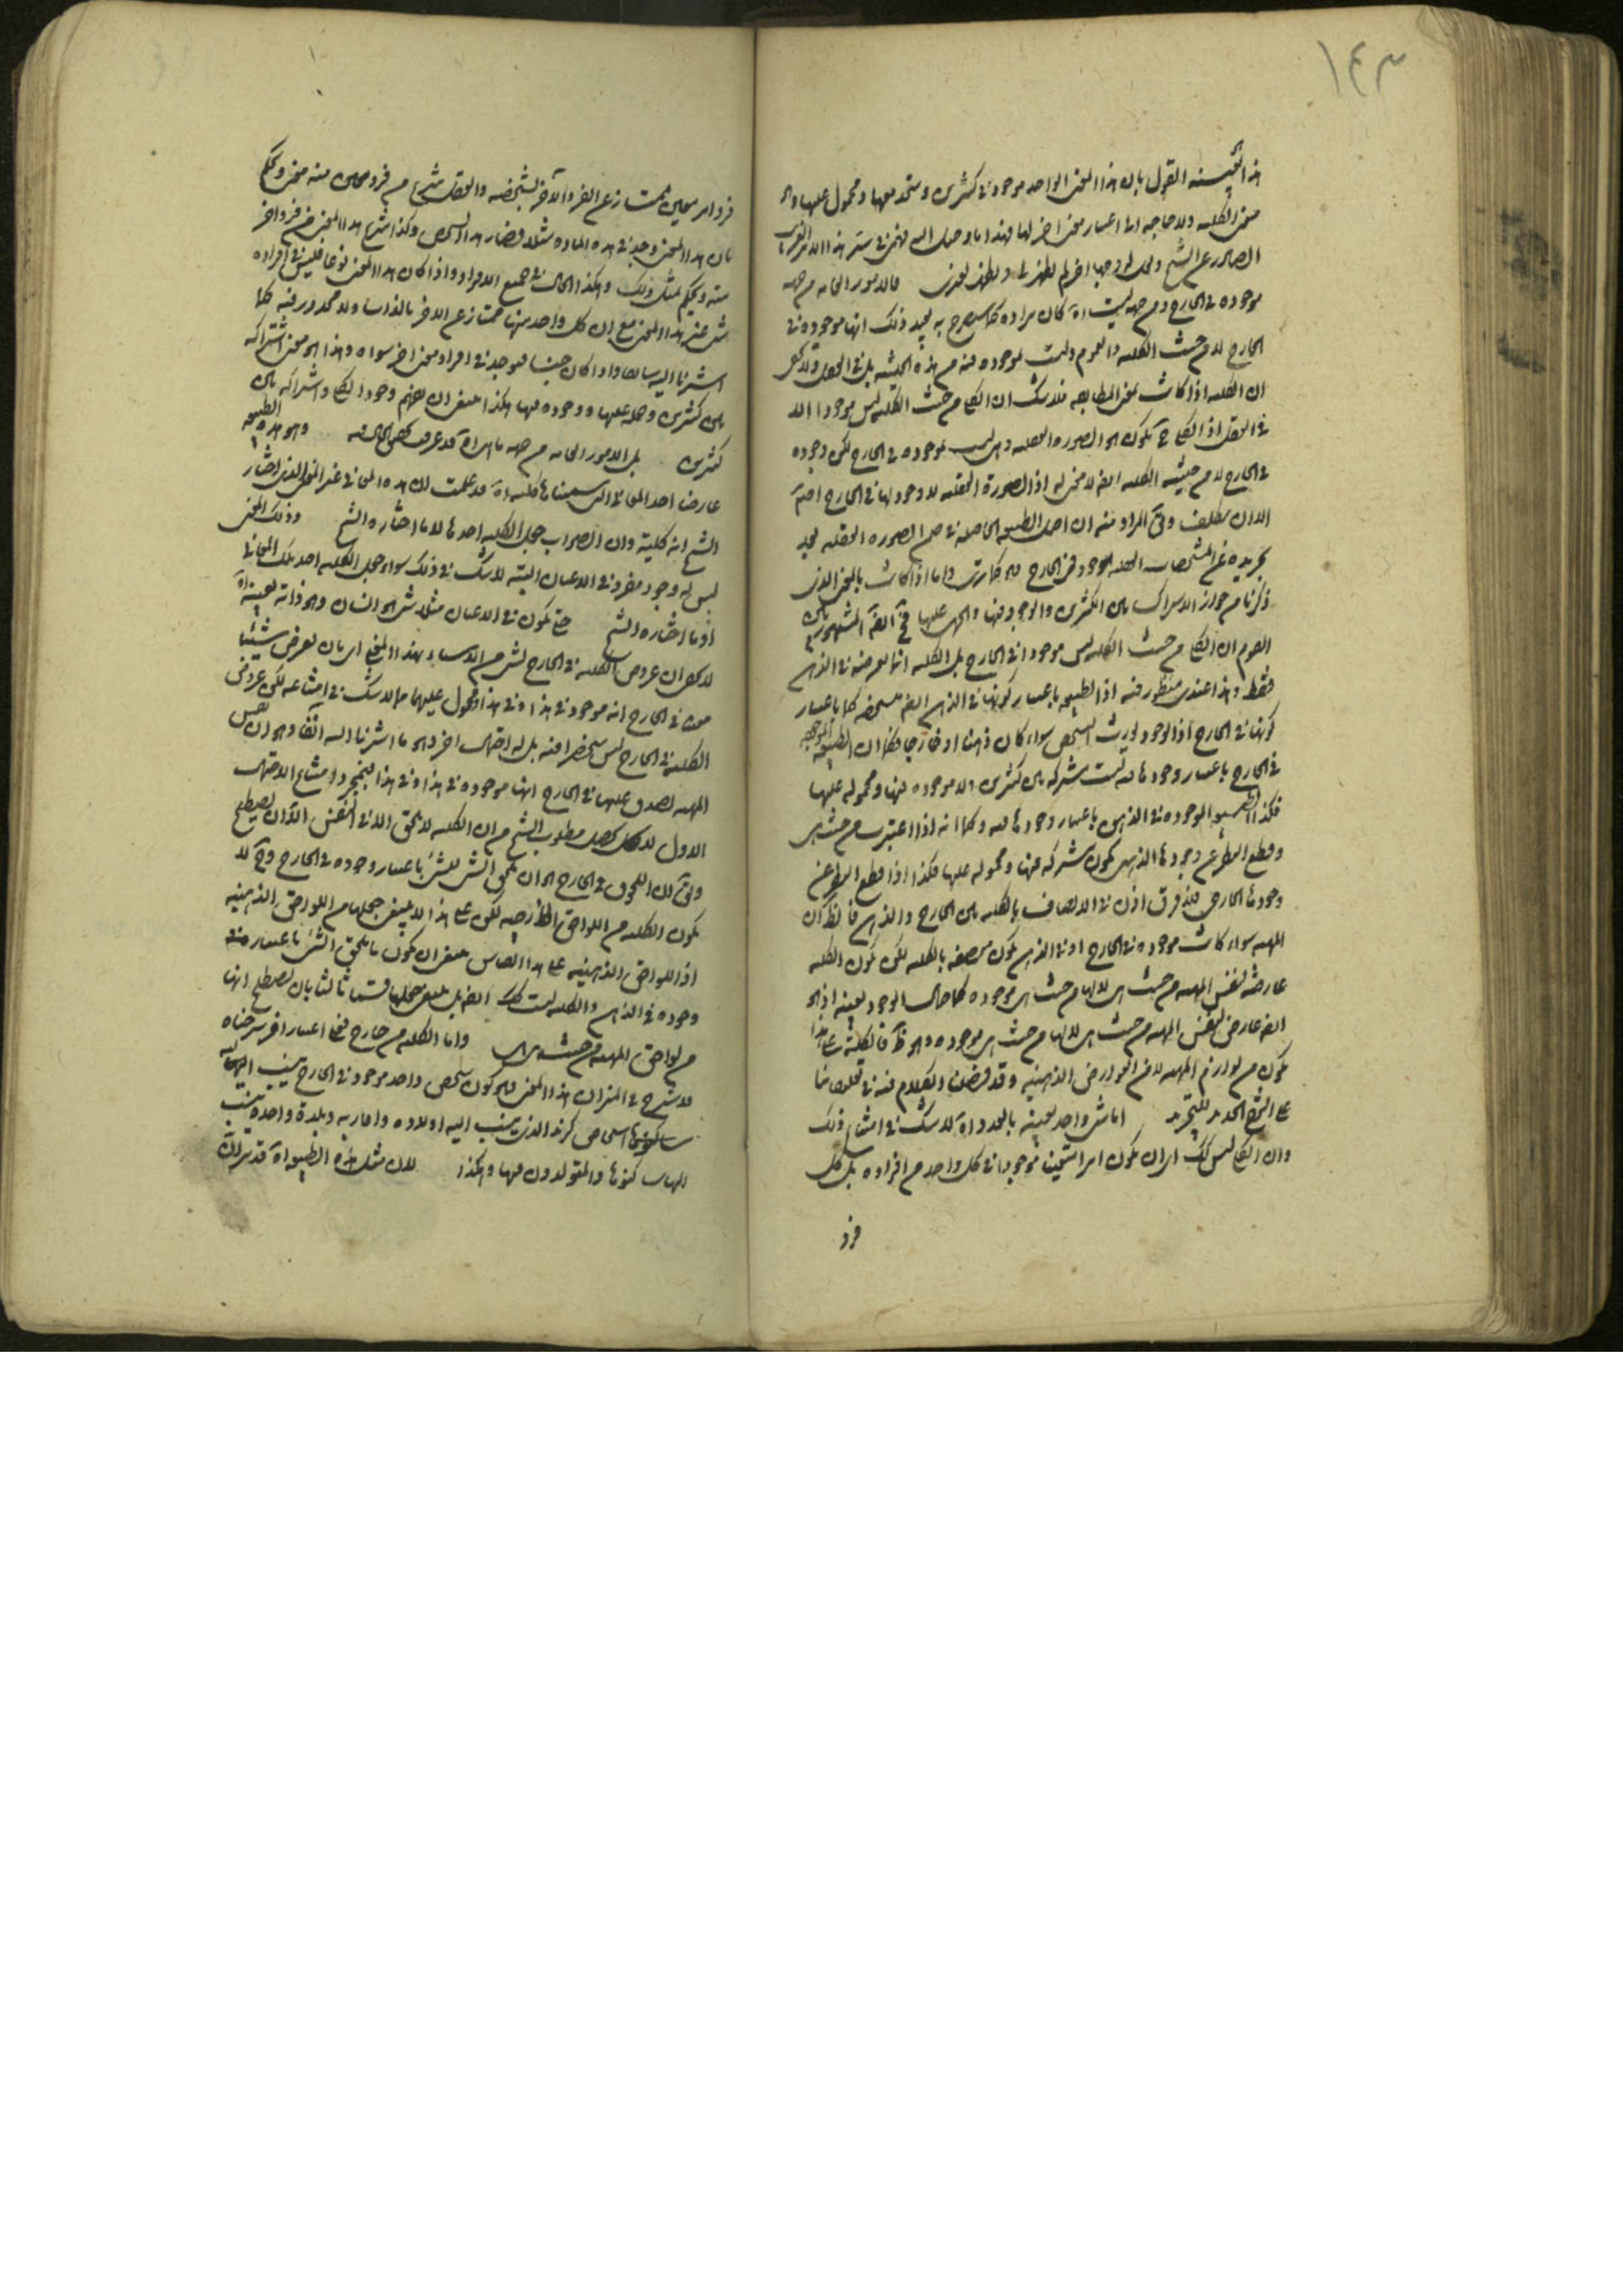 ١٤٣
هذا القول بان هذا المعنى الواحد موجود في كثيرين ومتحد معها ومحمول عليها وهو
معنى الكلية ولا حاجة الى اعتبار معنى اخر لها فهذا ما وصل اليه فهمي في ستر هذا
الصادر عن الشيخ ولعل لها اخر لم يظهر لي ويظهر لغيري فالامور العامة من جهة
موجودة في الخارج ومن جهة ليست اه كان مراده كما سيصرح به بعيد ذلك انها موجودة في
الخارج لا من حيث الكلية والعموم وليست بموجودة فيه من هذه الحيثية بل في العقل ولا
ان الكلية اذا كانت بمعنى المطابقة فلا شك ان الكلي من حيث الكلية ليس موجودا الا
في العقل اذ الكلي ح يكون هو الصورة العقلية وهي ليست بموجودة في الخارج لكن وجوده
في الخارج لا من حيثية الكلية ايضا لا معنى له اذ الصورة العقلية لا وجود لها في الخارج اصلا
الا ان يتكلف ويق المراد منه ان اصل الطبيعة الحاصلة في ضمن الصورة العقلية بعد
تجريده عن المشخصات العقلية موجود في الخارج واما اذا كانت بالمعنى الذي
ذكرنا من جواز الاشتراك بين الكثيرين والوجود فيها والحمل عليها فح ايضا المشهور بين
القوم ان الكلي من حيث الكلية ليس موجودا في الخارج بل الكلية انما تعرضه في الذهن
فقط وهذا عندي منظور فيه اذ الطبيعة باعتبار كونها في الذهن ايضا متشخصة كما باعتبار
كونها في الخارج اذ الوجود يورث التشخص سواء كان ذهنا او خارجا فكما ان الطبيعة الموجودة
في الخارج باعتبار وجودها فيه ليست مشتركة بين كثيرين ولا موجودة فيها ومحمولة عليها
فكذا الطبيعة الموجودة في الذهن باعتبار وجودها فيه وكما انه اذا اعتبرت من حيث هي
وقطع النظر عن وجودها الذهني يكون مشتركة فيها ومحمولة عليها فكذا اذا قطع النظر عن
وجودها الخارجي فلا فرق اذن في الاتصاف بالكلية بين الخارج والذهن فالظ ان
المهية سواء كانت موجودة في الخارج او في الذهن يكون متصفة بالكلية لكن يكون الكلية
عارضة لنفس المهية من حيث هي لا لها من حيث هي موجودة كما حال الوجود بعينه اذ هو
ايضا عارض لنفس المهية من حيث هي لا لها من حيث هي موجودة وهو ظ فالكلية على هذا
يكون من لوازم المهية لا من العوارض الذهنية وقد فصلنا الكلام فيه في تعليقاتنا
على الشرح الجديد للتجريد اما شئ واحد بعينه بالعدد اه لا شك في امتناع ذلك
وان الكلي ليس كك اي ان يكون امرا شخصيا موجودا في كل واحد من افراده بل كل
فرد
فرد امر معين ممتاز عن الفرد الآخر بشخصه والعقل ينتزع من فرد معين منه معنى ويحكم
بان هذا المعنى وجد في هذه المادة مثلا فصار هذا الشخص وكذا ينتزع هذا المعنى من فرد اخر
منه ويحكم بمثل ذلك وهكذا الحال في جميع الافراد واذا كان هذا المعنى نوعا فليس في افراده
شئ غير هذا المعنى مع ان كل واحد منها ممتاز عن الاخر بالذات ولا محذور فيه كما
اشرنا اليه سابقا واذا كان جنسا فيوجد في افراد معنى اخر سواه وهذا هو معنى اشتراكه
بين كثيرين وحمله عليها ووجوده فيها هكذا ينبغي ان يفهم وجود الكلي واشتراكه بين
كثيرين بل الامور العامة من جهة ما هي اه قد عرفت تحقيق الحال فيه وهو هذه الطبيعة
عارضا احد المعاني التي سميناها كلية اه قد علمت ان هذه المعاني غير المعنى الذي اختار
الشيخ انه كلية وان الصواب جعل الكلية احدها لا ما اختاره الشيخ وذلك المعنى
ليس له وجود مفرد في الاعيان البتة لا شك في ذلك سواء جعل الكلية احد تلك المعاني
او ما اختاره الشيخ حتى يكون في الاعيان مثلا شئ هو انسان وهو ذاته بعينه اه
لا يخفى ان عروض الكلية في الخارج لشئ من الاشياء بهذا المعنى اي بان يعرض شيئا
معينا في الخارج انه موجود في هذا وفي هذا ومحمول عليهما مما لا شك في امتناعه لكن عروض
الكلية في الخارج ليس منحصرا فيه بل له احتمال اخر وهو ما اشرنا اليه آنفا وهو ان نفس
المهية يصدق عليها في الخارج انها موجودة في هذا وفي هذا فبمجرد امتناع الاحتمال
الاول لا يحصل مطلوب الشيخ من ان الكلية لا يلحق الا في النفس الا ان يصطلح
ويق ان اللحوق في الخارج هو ان يلحق الشئ للشئ باعتبار وجوده في الخارج وح لا
يكون الكلية من اللواحق الخارجية لكن على هذا لا ينبغي جعلها من اللواحق الذهنية
اذ اللواحق الذهنية على هذا القياس ينبغي ان يكون ما يلحق الشئ باعتبار
وجوده في الذهن والكلية ليست كك ايضا بل ينبغي جعلها قسما ثالثا بان يصطلح انها
من لواحق المهية من حيث هي واما الكلية من خارج فعلى اعتبار اخر شرحناه
لا شرح في الفنون ان هذا المعنى هو كون شخص واحد موجود في الخارج ينسب اليه
اشخاص كزيد الذي ينسب اليه اولاده واقاربه وبلدة واحدة ينسب
اليها ساكنوها والمتولدون فيها وهكذا لان مثل هذه الطبيعة اه قد سلف